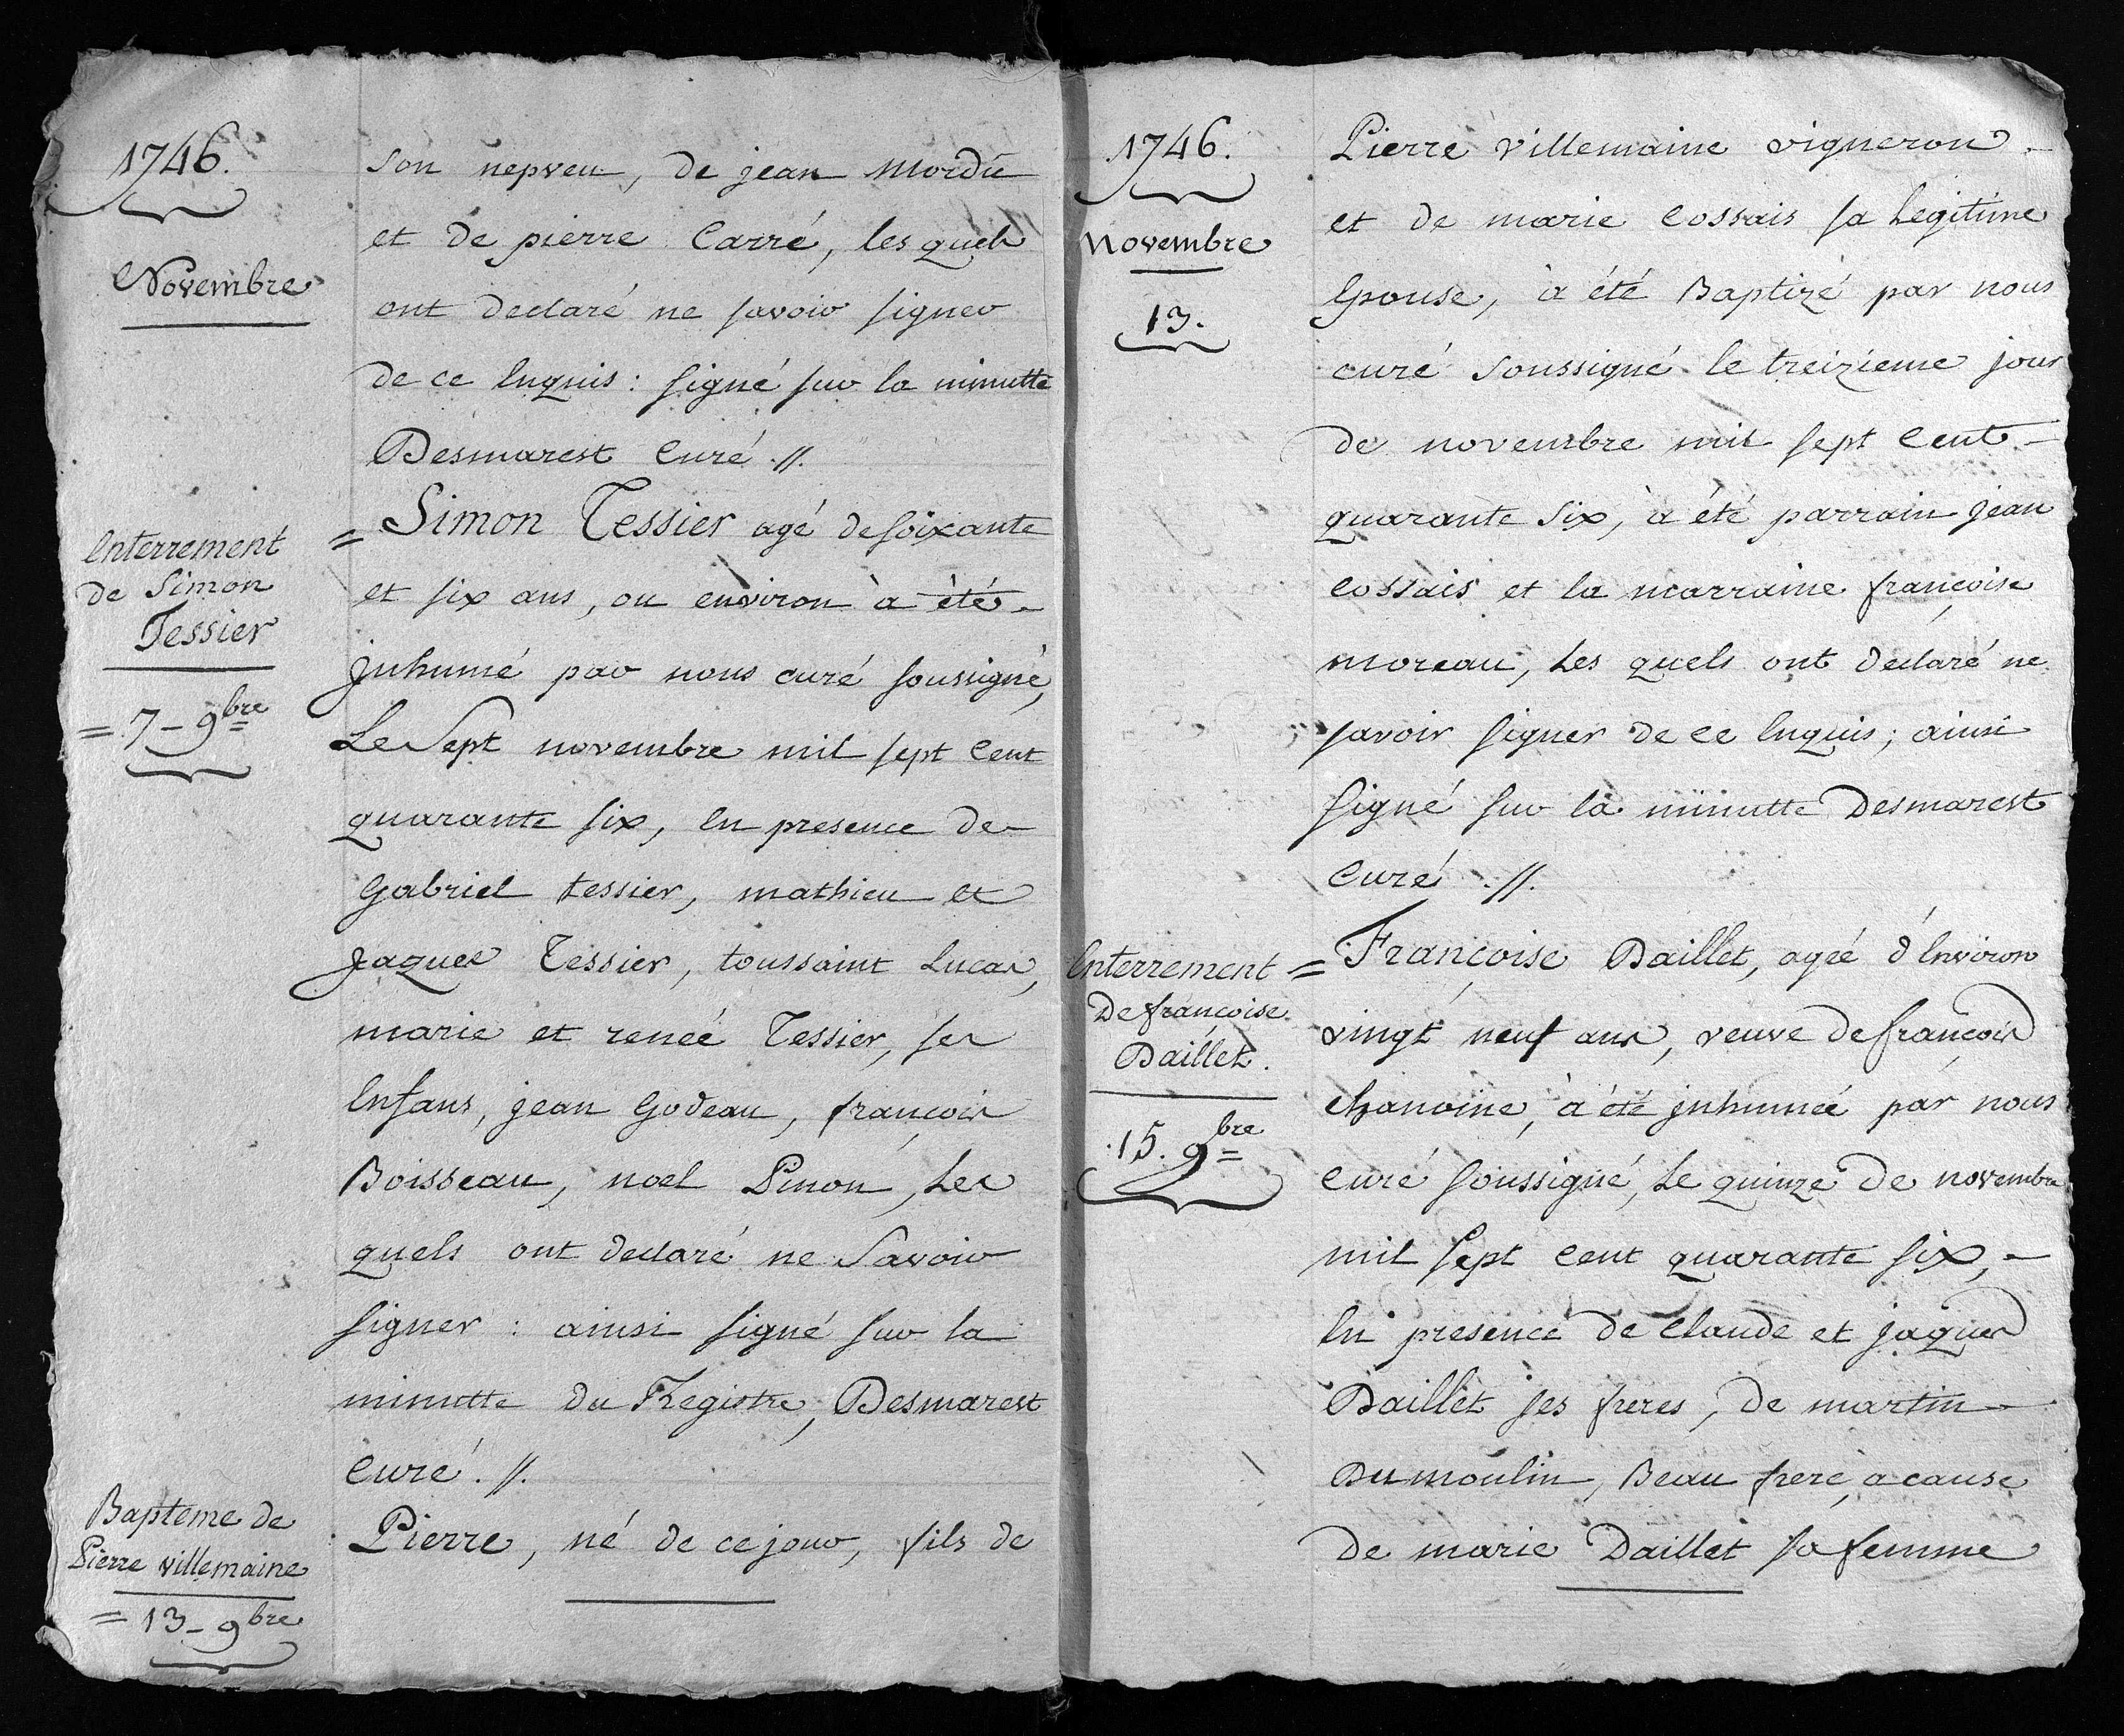 1746.
Novembre
son nepveu, de jean Mordu
et de pierre Carré, les quels
ont declaré ne savoir signer
de ce Enquis : signé sur la minutte
Desmarest Curé .//.
Enterrement
de Simon
Tessier
= 7 - 9bre
= Simon Tessier agé de soixante
et six ans, ou environ à été -
jnhumé par nous curé soussigné,
Le Sept novembre mil sept Cent
quarante six, En presence de
Gabriel tessier, mathieu et
Jaques Tessier, toussaint Lucas,
marie et renée Tessier, ses
Enfans, jean Godeau, françois
Boisseau, noel Pinon, Les
quels ont declaré ne Savoir
signer : ainsi signé sur la
minutte du Registre, Desmarest
Curé. //.
Bapteme de
Pierre villemaine
= 13 - 9bre
Pierre, né de ce jour, fils de
1746.
Novembre
13.
Pierre villemaine vigneron -
et de marie Cossais sa Legitime
Epouse, à été Baptizé par nous
curé soussigné le treizieme jour
de novembre mil sept Cent -
quarante six, à été parrain jean
Cossais et la marraine françoise
moreau, Les quels ont declaré ne
savoir signer de ce Enquis ; ainsi
signé sur la minutte Desmarest
Curé .//.
Enterrement
De françoise
Daillet.
15. 9bre
= Françoise Daillet, agée d'Environ
vingt neuf ans, veuve de françois
Chanoine, à été jnhumée par nous
curé soussigné, Le quinze de novembre
mil sept cent quarante six, -
En presence de Claude et jaques
Daillet ses freres, de martin -
Dumoulin, Beau frere, a cause
de marie Daillet sa femme